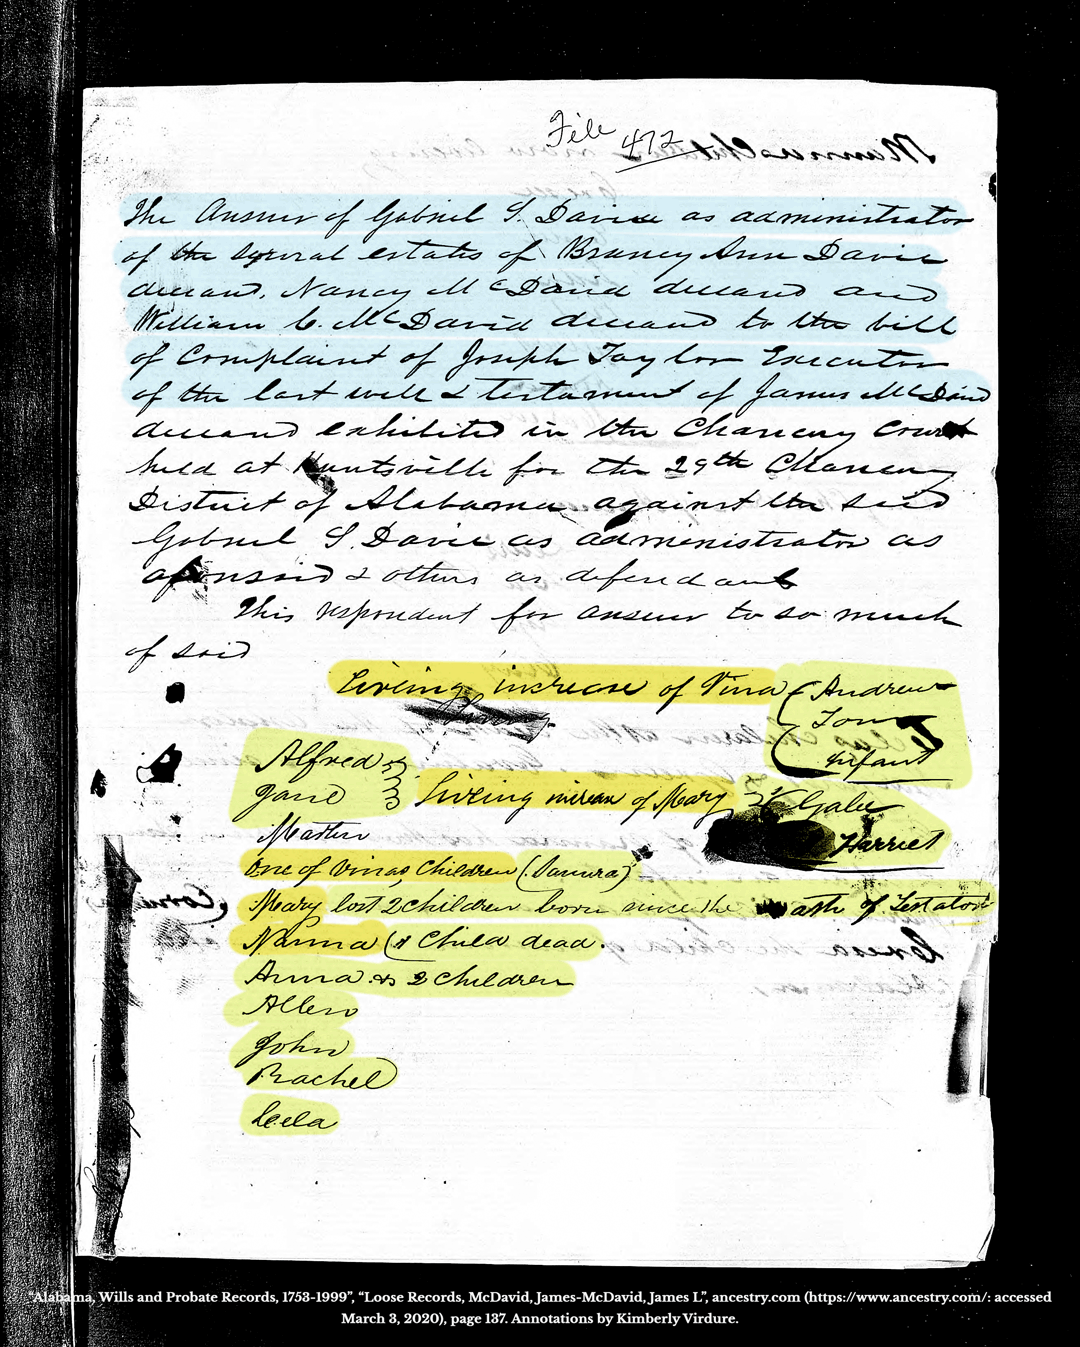 File 472
The Answer of Gabriel S. Davie as administrator
of the several estates of Brancy Ann Davie
deceasd, Nancy McDavid deceasd and
William C. McDavid deceasd to the bill
of Complaint of Joseph Taylor Executor
of the last will & testament of James McDavid
deceasd exhibited in the Chancery Court
held at Huntsville for the 29th Chancery
District of Alabama against the said
Gabriel S. Davie as administrator as
aforesaid & others as defendants
This respondent for answer to so much
of said
Liveing increase of Vina ( Andrew
Tom
infant
Alfred
Jane Liveing increas of Mary Gabe
Martin
Harriet
One of Vinas Children (
Mary lost 2 children born since the death of Testator
Nanna ( 1 Child dead.
Anna & 2 Children
Allen
John
Rachel
Leela
"Alabama, Wills and Probate Records, 1753-1999", "Loose Records, McDavid, James-McDavid, James L", ancestry.com (https://www.ancestry.com/: accessed
March 3, 2020), page 137. Annotations by Kimberly Virdure.